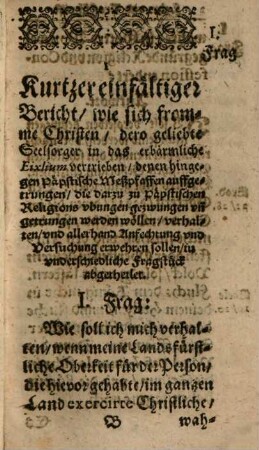 I.
Frag
Kurtzer einfältiger
Bericht / wie sich from-
me Christen / dero geliebte
Seelsorger in das erbärmliche
Eixlium vertrieben / denen hinge-
gen Päpstische Meßpfaffen auffge-
trungen / die darzu zu Päpstischen
Religions vbungen gezwungen vñ
getrungen werden wöllen / verhal-
ten / vnd allerhand Anfechtung vnd
Versuchung erwehren sollen / in
vnderschiedliche Fragstück
abgetheilet.
I. Frag:
Wie soll ich mich verhal-
ten / wenn meine Landsfürst-
liche Oberkeit für der Person /
die hievor gehabte / im gantzen
Land exercirte Christliche /
B wah-